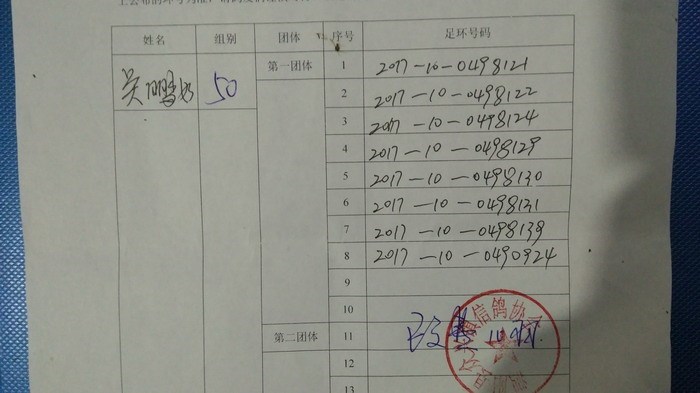 姓名 组别 团体 序号 足环号码
50 第一团体 1 2017-10-0498121
2 2017-10-0498122
3 2017-10-0498124
4 2017-10-0498129
5 2017-10-0498130
6 2017-10-0498131
7 2017-10-0498139
8 2017-10-0490924
9
10
第二团体 11
12
13
信鸽协会